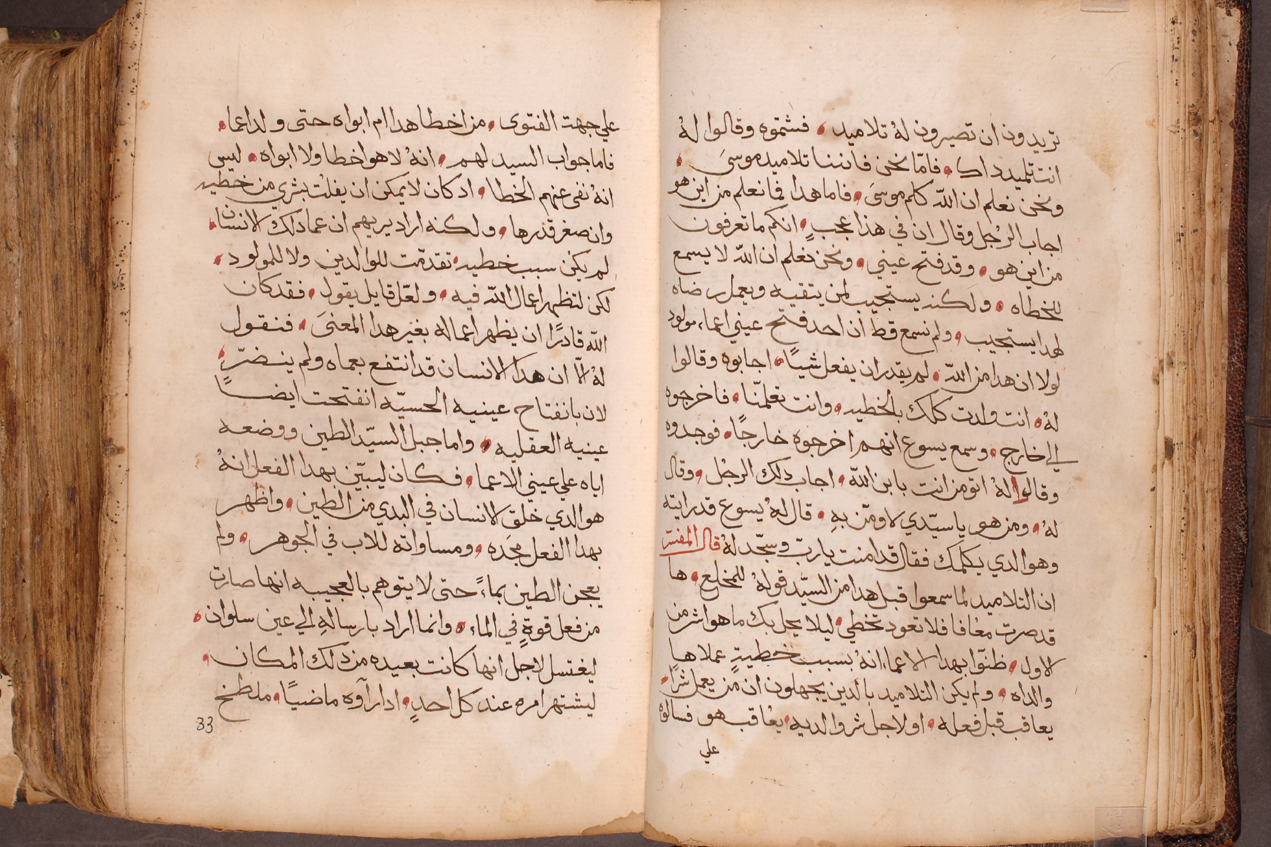 تريدون ان تصيرون لهُ تلاميد، فشتموه وقالوا لهُ
انت تلميد داك، فامّا نحن فاننا تلاميد موسىَ،
ونحن نعلم ان اللّه كلم موسىَ، فاما هدا فما نعلم من اين هو
اجاب الرجل وقال ان في هدا عجب، انكم ما تعرفون
من اين هو، وقد فتح عيني، ونحن نعلم ان اللّه لا يسمع
للخطاه، ولكنه يستجيب لمن يتقيه ويعمل رضاه
لهدا يستجيب، ولم نسمع قط ان احد فتح عيني اعما مولود
لولا ان هدا من اللّه، لم يقدر ان يفعل شياً، اجابوه وقالوا
لهُ، انت ولدت كلك بالخطيه، وانت تعلمنا، فاخرجوه
الي خارج، وسمع يسوع انهم اخرجوه خارجًا، فوجدوه
وقالوا لهُ اتومن انت بابن اللّه، اجاب دلك الرجل، وقال
لهُ، ومن هو ياسيّدي لاومن بهِ، قال لهُ يسوع قد رايته
وهو الدي يكلمك فقال قد امنت يارب وسجّد لهُ قال المفسر
ان التلاميد لما سمعوا قبل هدا من السيّد قولهُ للمخلع، ها
قد صرت معافا فلا تعود تخطي، ليلا يحل بك ما هو اشر من
الاول، ظنّوا بهدا الاعما انهُ بسبب خطيةٍ عملاها
والداه، ولم يكن التلاميد بالدين يجهلون ان من يعمل شراً،
يعاقب قبل فعله، او لاجل شر والديه، يعاقب هو فسالوه
علي
علي جهت الفتوى، من اخطا هدا ام ابواه حتى ولد اعما،
فاما جواب السيد لهم، انهُ لا هو اخطا ولا ابواه، ليس
انهُ نفى عنهم الخطا، اد كان لا يمكن ان يفلت بشري من خطيه
وان صغر قدرها، ولكنه اراد يريهم ان عما دلك الانسان،
لم يكن سبب خطيه، تقدمت للوالدين ولا للمولود،
لكن لتظهر اعمال اللّه فيه، ولعل قايل يقول، فقد كان
اللّه قادرًا ان يظهر اعماله بغير هدا المعنىَ، فنقول
لهُ لاّ ان هدا الانسان قد انتفع بعماه ولم ينضرّ،
لان بانفتاح عينيه الحسيّه انفتحت ايضًا
عينيه العقليه، واما جبل السيّد الطين ووضعه
اياه علي عيني الاعما، فكان ليبيّن بهدا الفعل انهُ
هو الدي خلقَ الانسان في البدي من الطين، واظهر
بهدا الفعل مجده، ومساواته للاب في الجوهر، ولم
يعجن الطين بماءً حتى لا يتوهم بالعجيبه انها صارت
من فعل قوةٍ في الماء، وانما اراد بارسالهِ الي عين سلوان،
ليغتسل لاجل انها كانت بعيده من دلك المكان،
ليشتهر امره عند كل احدٍ، ادا راوه ماضيًا، ملطخ
33